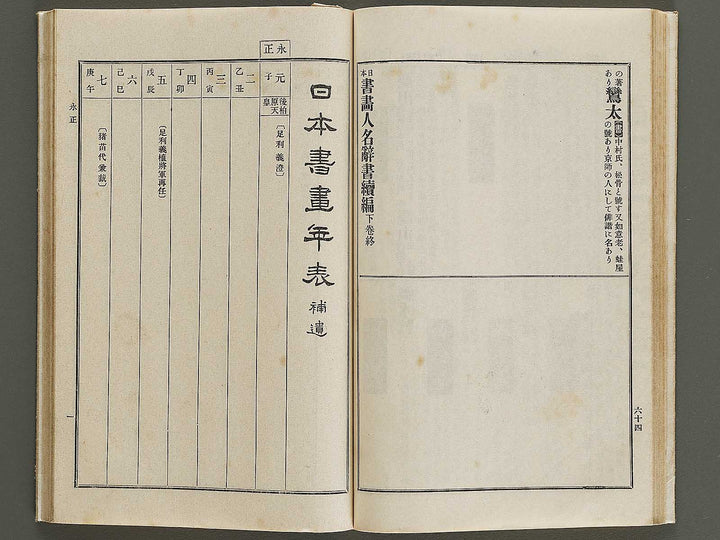 の著あり
鸞太
中村氏、松骨と號す又如意老、蛙屋
の號あり京師の人にして俳諧に名あり
日本書畫人名辭書續編下卷終
六十四
日本書畫年表補遺
永正
元
子
後柏原天皇
〔足利義澄〕
二
乙丑
三
丙寅
四
丁卯
五
戊辰
〔足利義植將軍再任〕
六
己巳
七
庚午
〔猪苗代兼載〕
永正
一